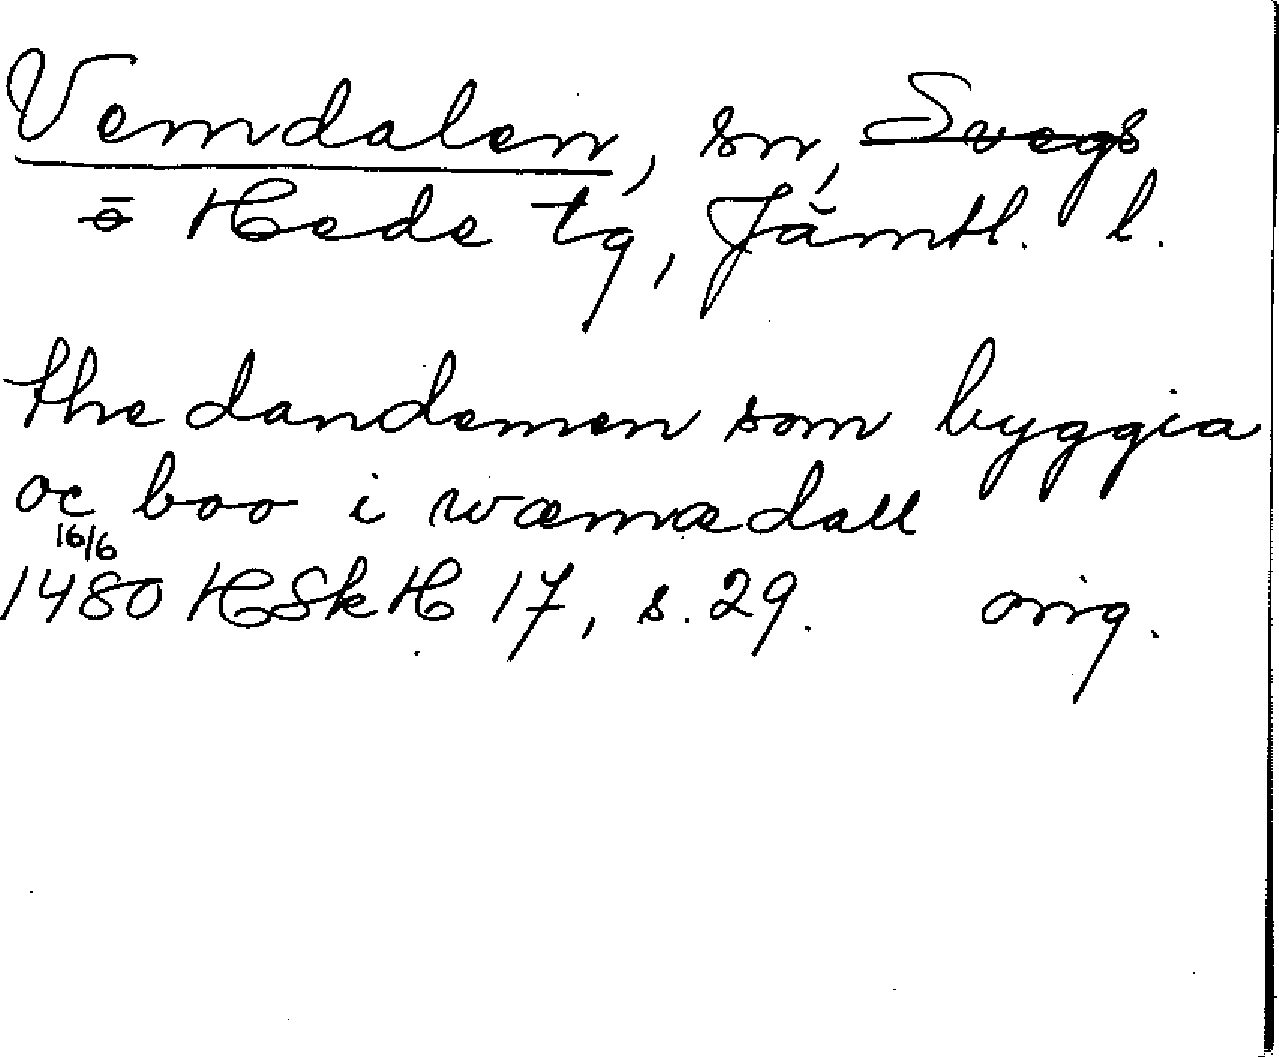 Vemdalen, sn, Svegs
o Hede tg, Jämtl. l.
the dandemen som byggia
oc boo i wæmædall
16/6
1480 HSkH 17, s. 29. orig.